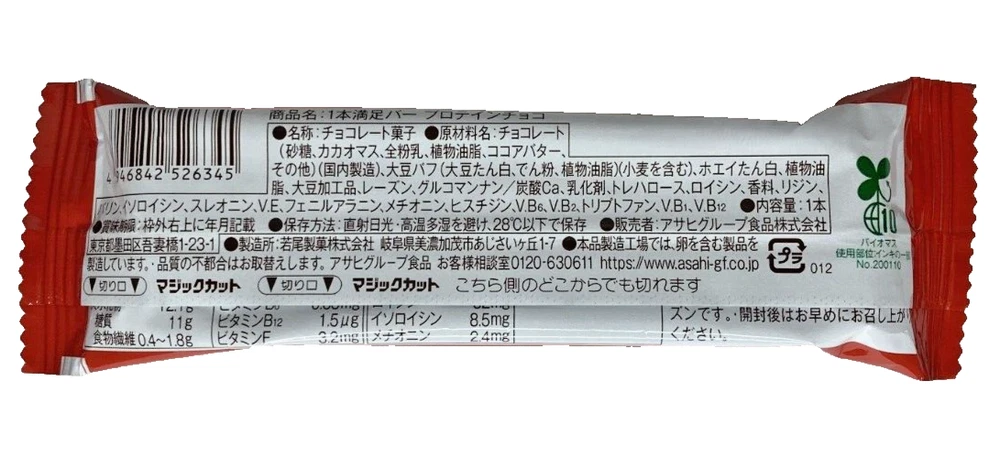 商品名:1本満足バー プロテインチョコ
●名称:チョコレート菓子 ●原材料名:チョコレート
(砂糖、カカオマス、全粉乳、植物油脂、ココアバター、
その他)(国内製造)、大豆パフ(大豆たん白、でん粉、植物油脂)(小麦を含む)、ホエイたん白、植物油
脂、大豆加工品、レーズン、グルコマンナン/炭酸Ca、乳化剤、トレハロース、ロイシン、香料、リジン、
バリン、イソロイシン、スレオニン、V.E、フェニルアラニン、メチオニン、ヒスチジン、V.B6、V.B2、トリプトファン、V.B1、V.B12 ●内容量:1本
●賞味期限:枠外右上に年月記載 ●保存方法:直射日光・高温多湿を避け、28℃以下で保存 ●販売者:アサヒグループ食品株式会社
東京都墨田区吾妻橋1-23-1 ●製造所:若尾製菓株式会社 岐阜県美濃加茂市あじさいヶ丘1-7 ●本品製造工場では、卵を含む製品を
製造しています。・品質の不都合はお取替えします。アサヒグループ食品 お客様相談室0120-630611 https://www.asahi-gf.co.jp
プラ 012
4 946842 526345
10
バイオマス
使用部位:インキの一部
No.200110
▼切り口▼ マジックカット ▼切り口▼ マジックカット こちら側のどこからでも切れます
糖質 11g ビタミンB12 1.5μg イソロイシン 8.5mg
食物繊維 0.4~1.8g ビタミンE 3.2mg メチオニン 2.4mg
ズンです。・開封後はお早めにお召し上が
ください。